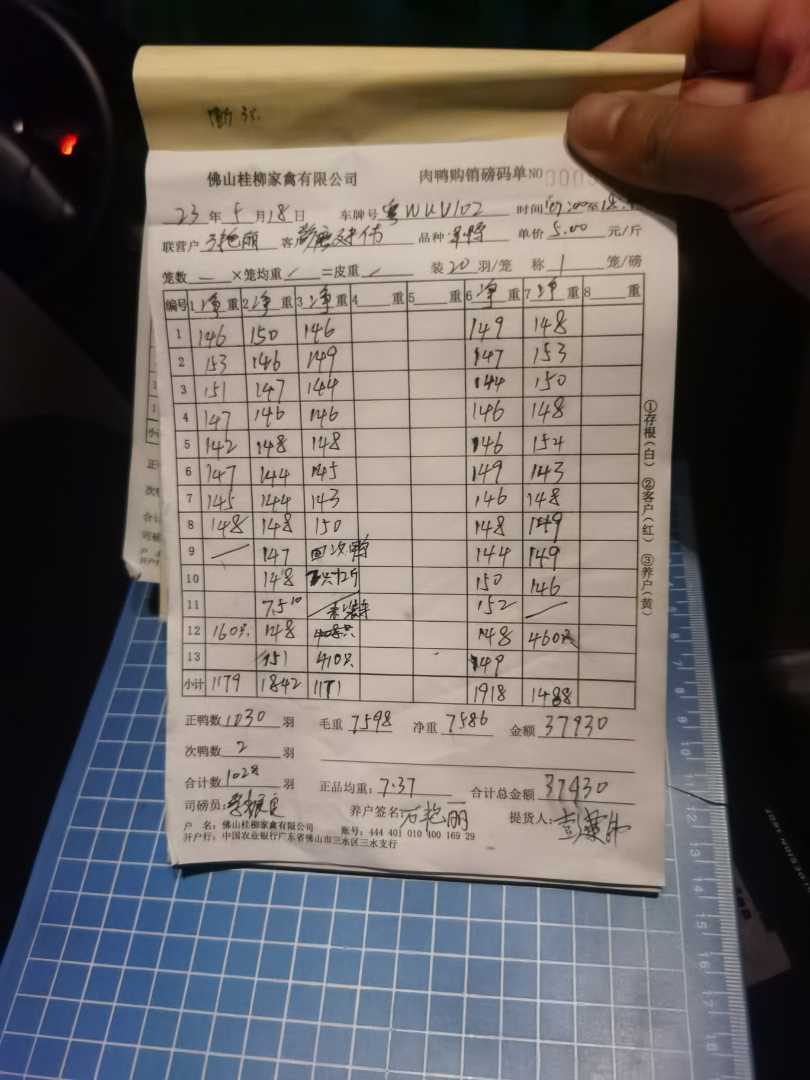 佛山桂柳家禽有限公司 肉鸭购销磅码单NO
23年5月18日 车牌号 粤WUV102 时间
联营户 艳丽 客 品种 单价 5.00 元/斤
笼数 — ×笼均重 / =皮重 / 装20羽/笼 称1笼/磅
编号 1净重 2净重 3净重 4重 5重 6净重 7净重 8重
1 146 150 146 149 148
2 153 146 149 147 153
3 151 147 144 144 150
4 147 146 146 146 148
5 142 148 148 146 154
6 147 144 145 149 143
7 145 144 143 146 148
8 148 148 150 148 149
9 — 147 回次鸭 144 149
10 148 150 146
11 7.5 152 —
12 160只 148 148 460只
13 151 410只 149
小计 1179 1842 1171 1918 1488
正鸭数 1030 羽 毛重 7598 净重 7586 金额 37930
次鸭数 2 羽
合计数 1028 羽 正品均重: 7.37 合计总金额 37930
司磅员: 养户签名: 石艳丽 提货人:
户 名: 佛山桂柳家禽有限公司 账号: 444 401 010 400 169 29
开户行: 中国农业银行广东省佛山市三水区三水支行
①存根(白) ②客户(红) ③养户(黄)